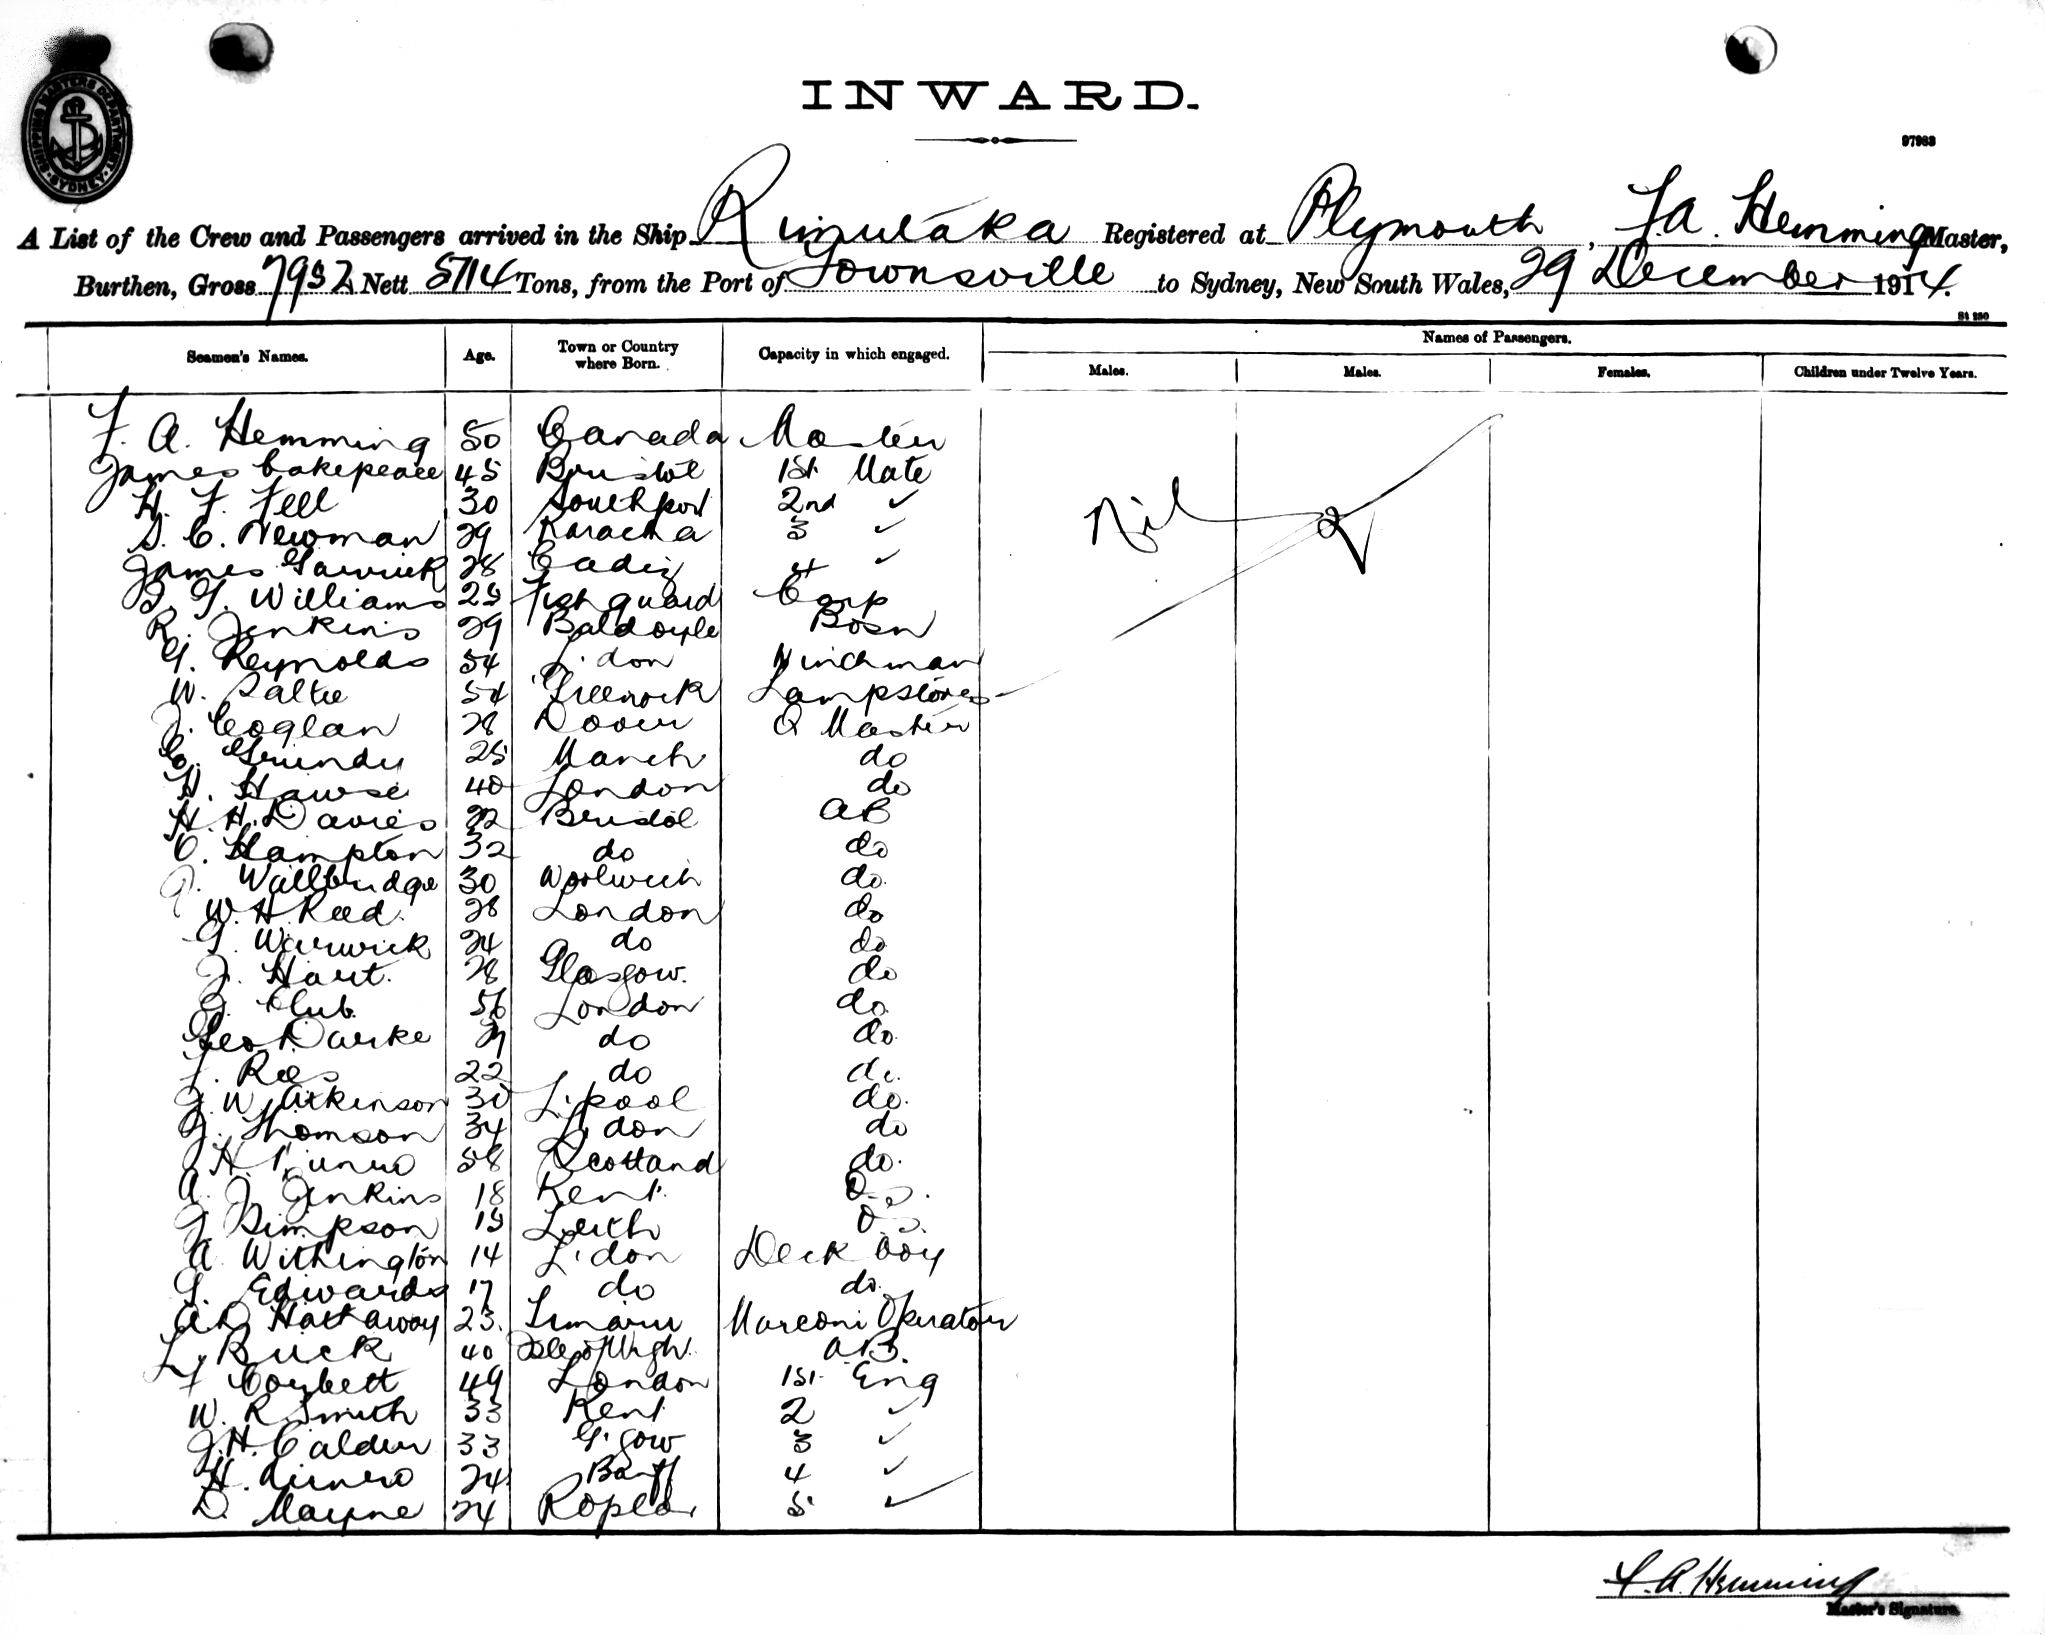 SHIPPING MASTERS DEPARTMENT SYDNEY
INWARD.
97983
A List of the Crew and Passengers arrived in the Ship Rimutaka Registered at Plymouth, F.A. Hemming Master,
Burthen, Gross 7952 Nett 5714 Tons, from the Port of Townsville to Sydney, New South Wales, 29 December 1914.
St 230
Seamen's Names. Age. Town or Country where Born. Capacity in which engaged. Names of Passengers.
Males. Males. Females. Children under Twelve Years.
F. A. Hemming 50 Canada Master
James Cakepeace 45 Bristol 1st Mate
H. F. Fell 30 Southport 2nd ✓
S. C. Newman 29 3 ✓
Nil
James Garrick 28 Cadiz 4 ✓
G. Williams 25 Fishguard Carp
R. Jenkins 29 Baldoyle Bosn
G. Reynolds 54 L'don Winchman
W. Saltee 54 Greenock Lamps
J. Coglan 28 Dover Q Master
C. Grundy 25 Manch do
H. Hawse 40 London do
H. H. Davies 22 Bristol AB
C. Hampton 32 do do
J. Wallbridge 30 Woolwich do
W. H. Reed. 28 London do
G. Warwick 24 do do
J. Hart. 28 Glasgow. do
J. Club 56 London do
Geo Darke do do
J. Rees 22 do do.
J. W. Atkinson 30 L'pool do.
J. Thomson 34 L'don do
H. Munro 58 Scotland do.
A. J. Jenkins 18 Kent. O.S.
J. Simpson 19 Leith O.S.
A Withington 14 L'don Deck Boy
G. Edwards 17 do do.
A. D. Hattaway 23. Timaru Marconi Operator
L. Buck 40 Isle of Wight. A.B.
F Corbett 49 London 1st Eng
W. R Smith 33 Kent 2 ✓
J. H. Calder 33 G'gow 3 ✓
H. Munro 24 Banff 4 ✓
D. Mayne 24 5 ✓
F. A. Hemming
Master's Signature.